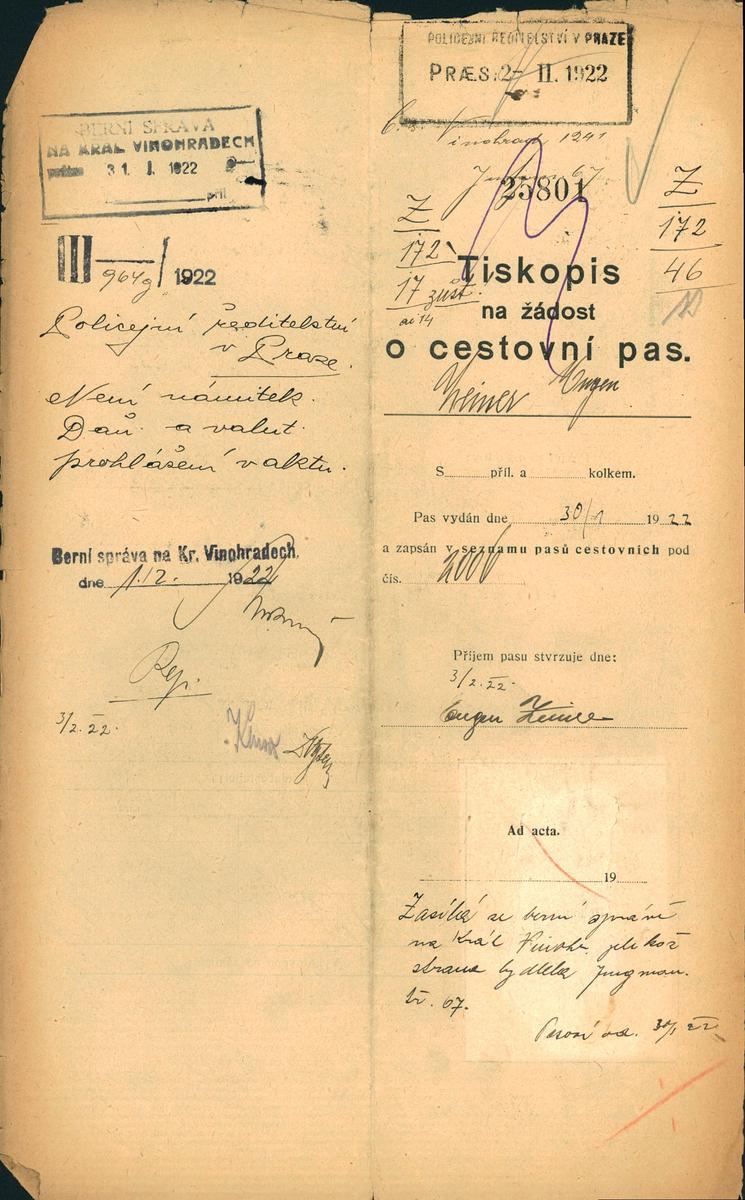 BERNÍ SPRÁVA
NA KRÁL. VINOHRADECH
31. I. 1922
příl.
III 964g / 1922
Policejní ředitelství
v Praze.
Není námitek.
Daň. a valut.
prohlášení v aktu.
Berní správa na Kr. Vinohradech,
dne 1./2. 1922
Rep.
3/2. 22.
POLICEJNÍ ŘEDITELSTVÍ V PRAZE
PRÆS: 2- II. 1922
inohrad 1241
67
25801
Z
172
17 zúst.
ai 14
Z
172
46
Tiskopis
na žádost
o cestovní pas.
Zeiner Eugen
S příl. a kolkem.
Pas vydán dne 30/1 1922
a zapsán v seznamu pasů cestovních pod
čís. 2006
Příjem pasu stvrzuje dne:
3/2. 22.
Eugen Zeiner
Ad acta.
19
Zasílá se berní správě
na Král. Vinohr. jelikož
strana bydlela Jungman.
tř. 67.
30/1 22